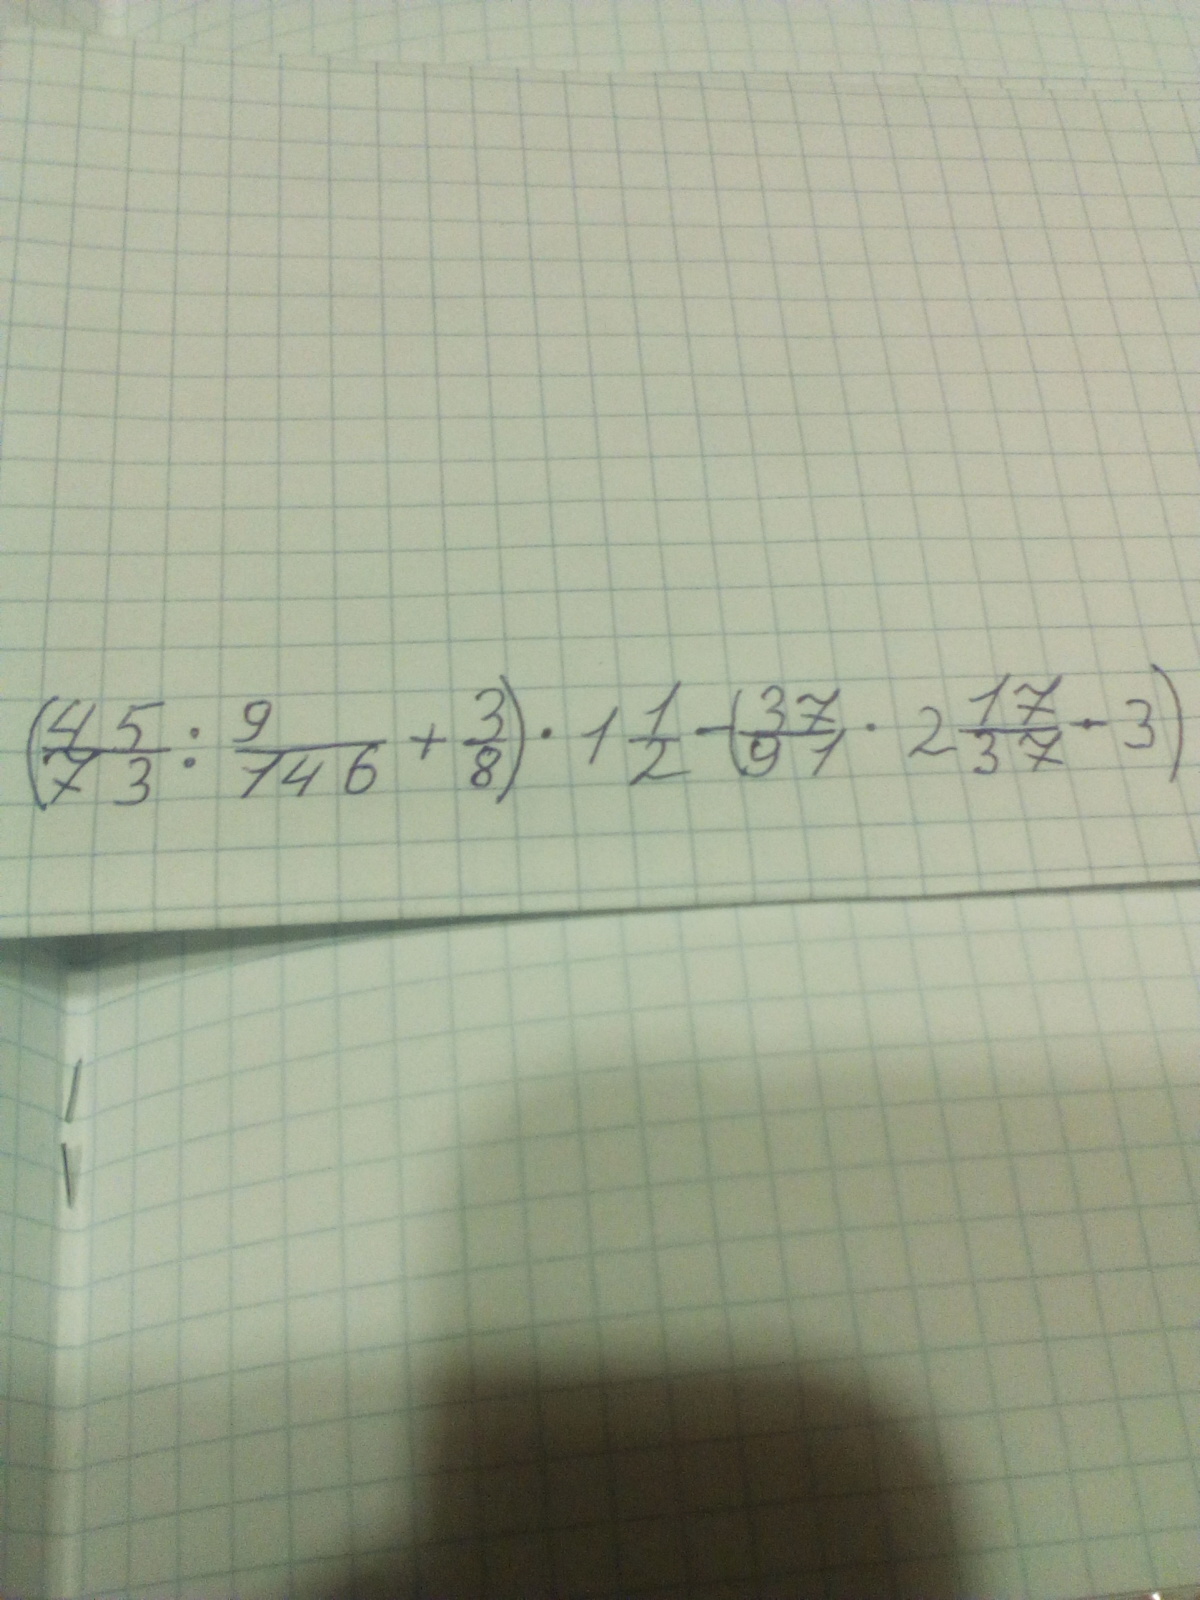 (45/73 : 9/146 + 3/8) · 1 1/2 - (37/91 · 2 17/37 - 3)